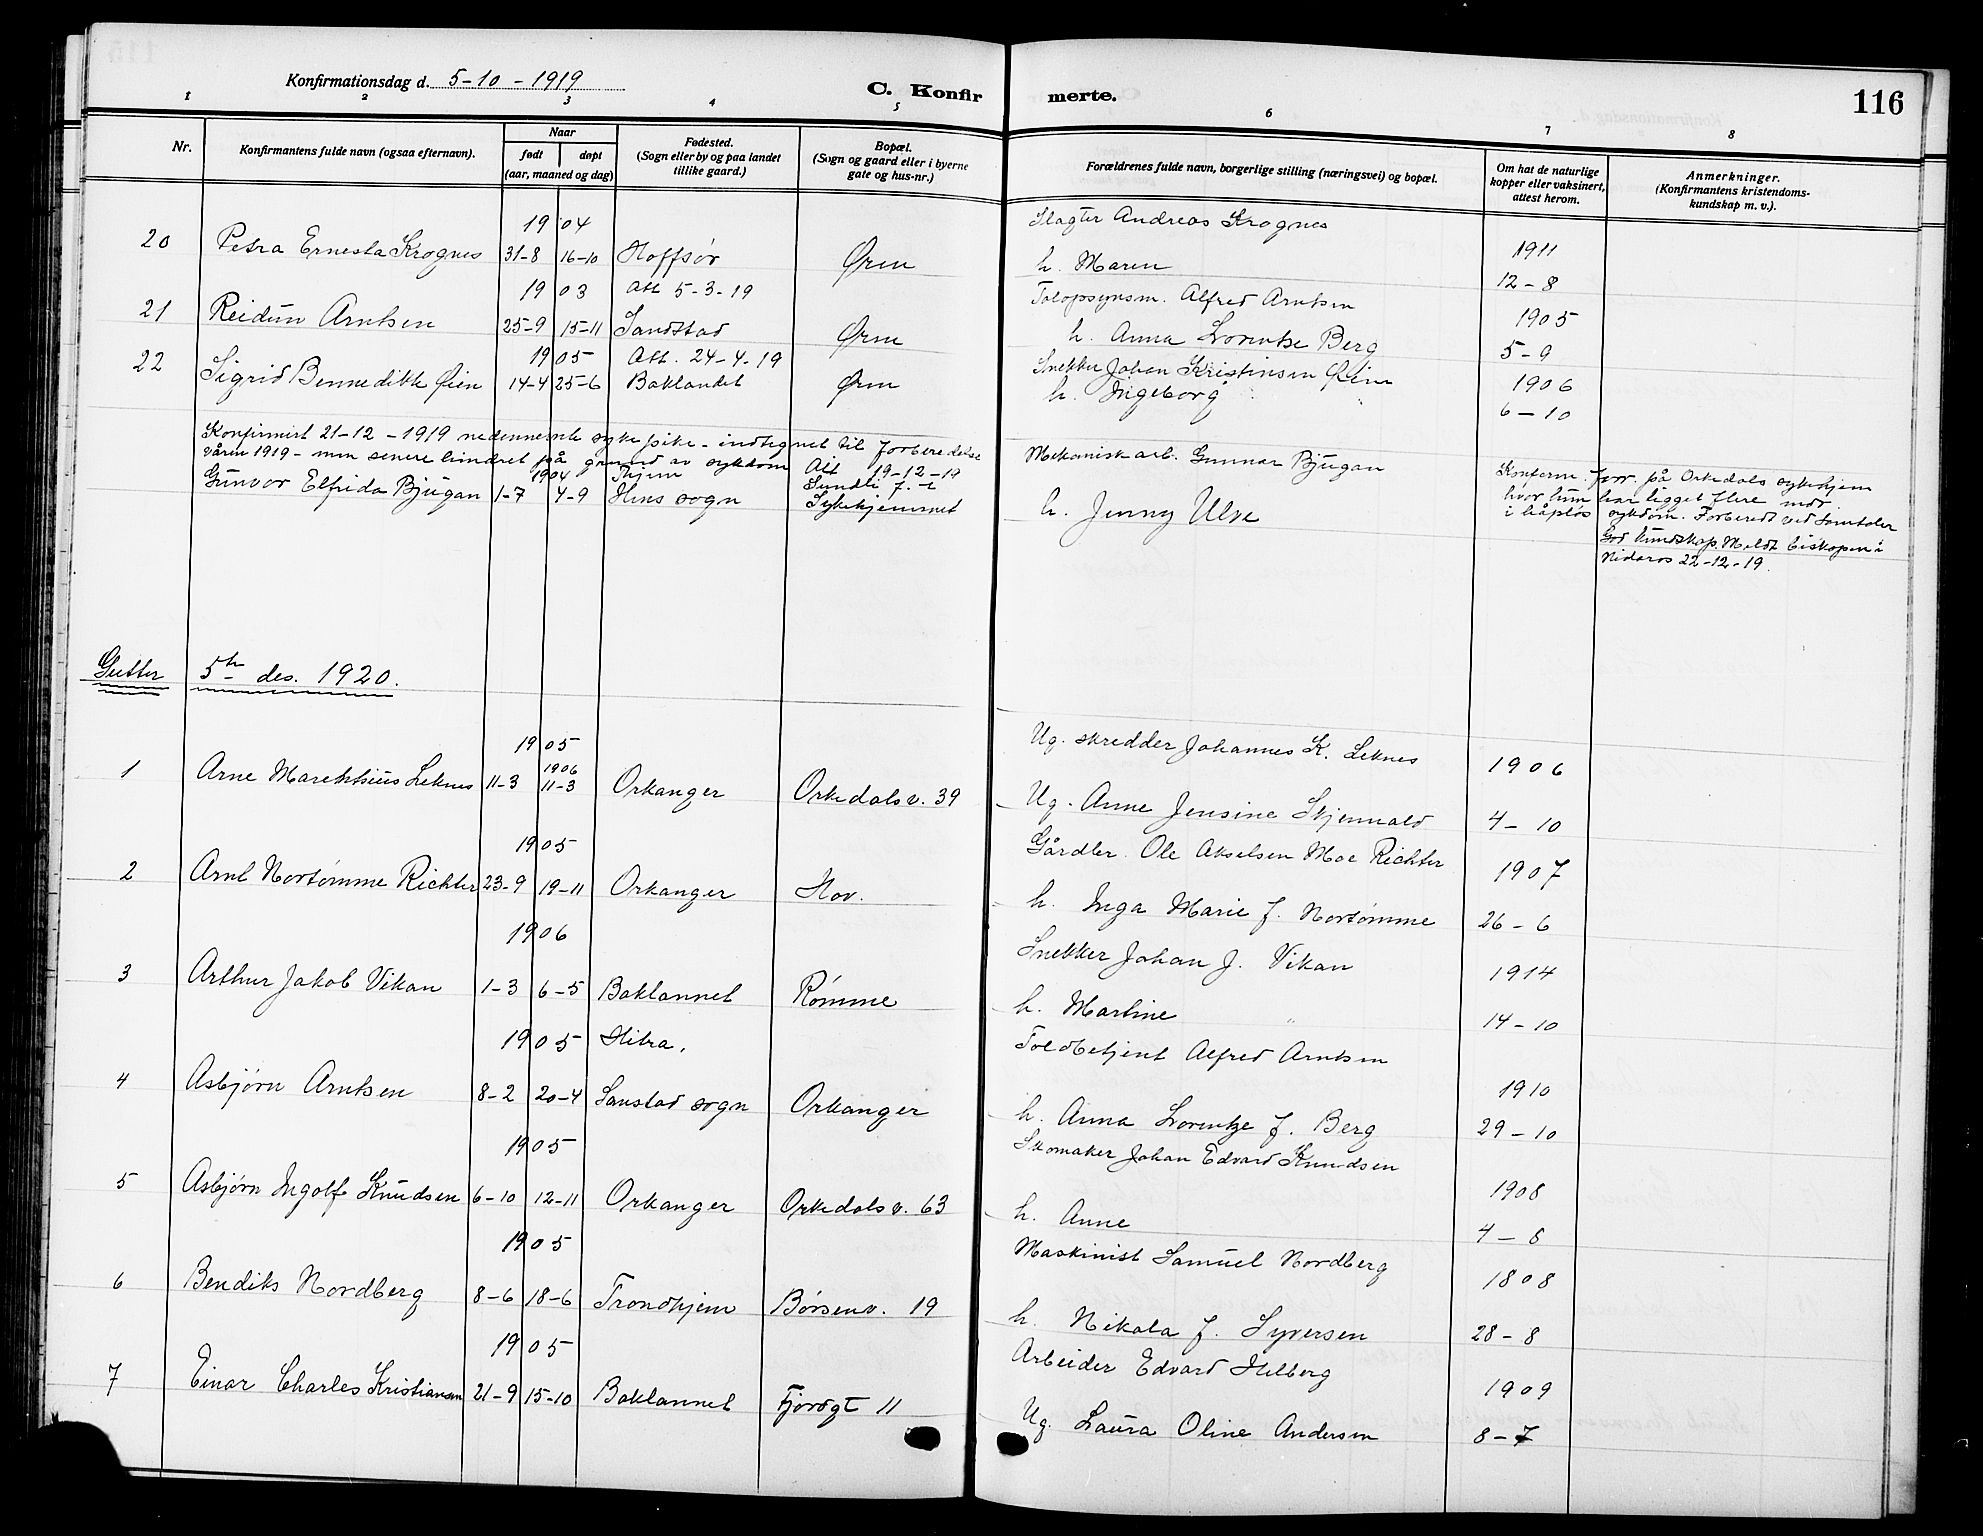 Konfirmationsdag d. 5-10-1919
C. Konfirmerte.
116
1 2 3 4 5 6 7 8
Nr.
Konfirmantens fulde navn (ogsaa efternavn).
Naar
født døpt
(aar, maaned og dag)
Fødested.
(Sogn eller by og paa landet
tillike gaard.)
Bopæl.
(Sogn og gaard eller i byerne
gate og hus-nr.)
Forældrenes fulde navn, borgerlige stilling (næringsvei) og bopæl.
Om hat de naturlige
kopper eller vaksinert,
attest herom.
Anmerkninger.
(Konfirmantens kristendoms-
kundskap m. v.).
1904 Slagter Andreas Krognes 1911
20 Petra Ernesta Krognes 31-8 16-10 Hoffsør Øren h. Maren 12-8
1903 Att 5-3-19 Tolopsynsm. Alfred Arntsen 1905
21 Reidun Arntsen 25-9 15-11 Sandstad Øren h. Anna Lorentze Berg 5-9
1905 Att. 24-4-19 Snekker Johan Kristinsen Øien 1906
22 Sigrid Bennedikte Øien 14-4 25-6 Baklandet Øren h. Ingeborg 6-10
Konfirmert 21-12-1919 nedennevnte syke pike - indtegnet til forberedelse
våren 1919 - men senere hindret på grund av sykdom Att 19-12-19
1904 Thjem Sundli
Gunvor Elfrida Bjugan 1-7 4-9 sogn Sykehjemmet
Mekanisk arb. Gunnar Bjugan
h. Jenny Ulve
Konferm. forr. på Orkedals sykehjem
hvor hun har ligget flere mdr.
i håpløs sykdom. Forberedt ved samtaler
God kundskap. Meldt biskopen i
Nidaros 22-12-19.
Gutter 5te des. 1920.
1905 Ug. skredder Johannes K. Leknes 1906
1906
1 Arne Leknes 11-3 11-3 Orkanger Orkedalsv. 39 Ug. Anne Jensine Skjennald 4-10
1905 Gårdbr. Ole Akselsen Moe Richter 1907
2 Arnt Nortømme Richter 23-9 19-11 Orkanger Hov. h. Inga Marie f. Nortømme 26-6
1906 Snekker Johan J. Vikan 1914
3 Arthur Jakob Vikan 1-3 6-5 Baklannet Rømme h. Martine " 14-10
1905 Hitra, Toldbetjent Alfred Arntsen 1910
4 Asbjørn Arntsen 8-2 20-4 Sanstad sogn Orkanger h. Anna Lorentze f. Berg 29-10
1905 Skomaker Johan Edvard Knudsen 1908
5 Asbjørn Ingolf Knudsen 6-10 12-11 Orkanger Orkedalsv. 63 h. Anne 4-8
1905 Maskinist Samuel Nordberg 1808
6 Bendiks Nordberg 8-6 18-6 Trondhjem Børsenv. 19 h. Nikola f. Syversen 28-8
1905 Arbeider Edvard Helberg 1909
7 Einar Charles Kristiansen 21-9 15-10 Baklannet Fjordgt 11 Ug. Laura Oline Andersen 8-7